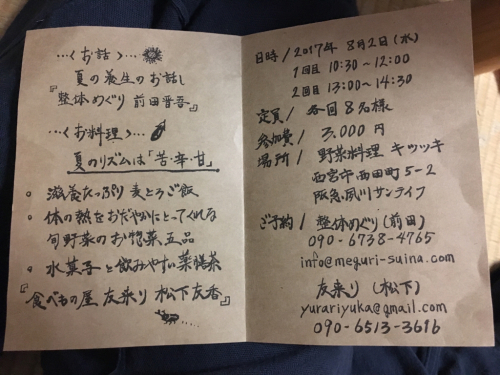 …〈お話〉…
夏の養生のお話し
『整体めぐり 前田晋吾』
…〈お料理〉…
夏のリズムは「苦・辛・甘」
。滋養たっぷり 麦とろご飯
。体の熱をおだやかにとってくれる
旬野菜のお惣菜五品
。水菓子と飲みやすい薬膳茶
『食べもの屋 友来り 松下友香』
日時/2017年 8月2日(水)
1回目 10:30~12:00
2回目 13:00~14:30
定員/各回8名様
参加費/3,000円
場所/野菜料理 キツツキ
西宮市西田町5-2
阪急夙川サンライフ
ご予約/整体めぐり(前田)
090-6738-4765
info@meguri-suina.com
友来り(松下)
yurariyuka@gmail.com
090-6513-3616